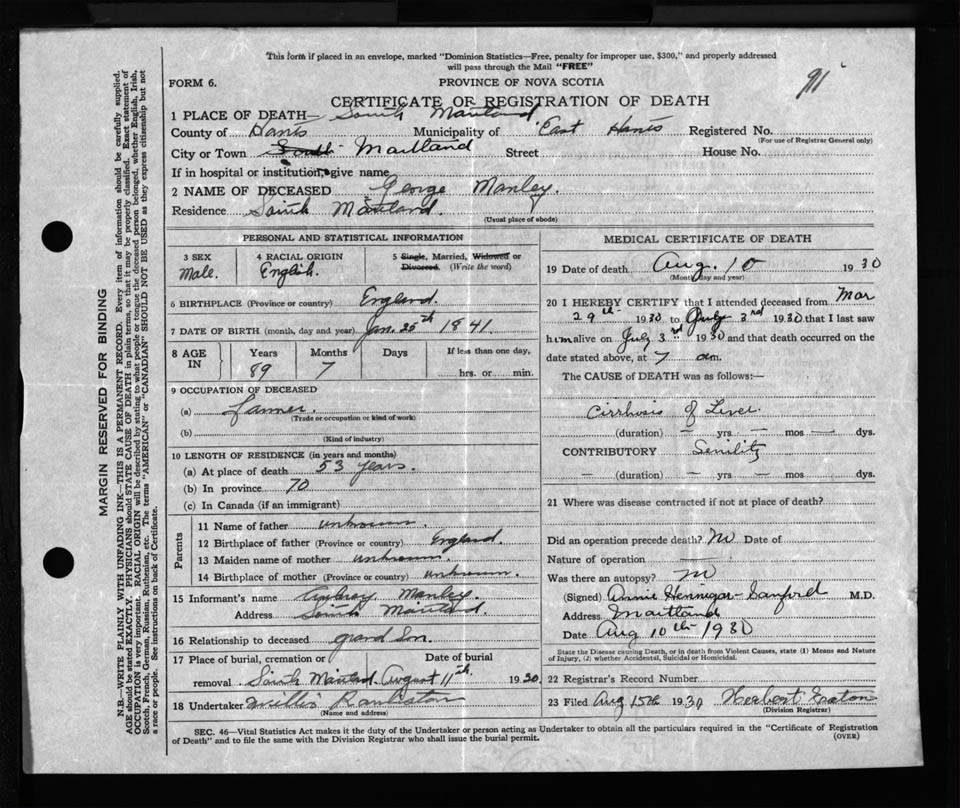 This form if placed in an envelope, marked "Dominion Statistics—Free, penalty for improper use, $300," and properly addressed
will pass through the Mail "FREE"
91
FORM 6.
PROVINCE OF NOVA SCOTIA
CERTIFICATE OF REGISTRATION OF DEATH
1 PLACE OF DEATH— South Maitland
County of Hants Municipality of East Hants Registered No.
(For use of Registrar General only)
City or Town South Maitland Street House No.
If in hospital or institution, give name
2 NAME OF DECEASED George Manley.
Residence South Maitland.
(Usual place of abode)
PERSONAL AND STATISTICAL INFORMATION
3 SEX 4 RACIAL ORIGIN 5 Single, Married, Widowed or
Male. English. Divorced. (Write the word)
6 BIRTHPLACE (Province or country) England.
7 DATE OF BIRTH (month, day and year) Jan. 25th 1841.
8 AGE IN Years Months Days If less than one day,
89 7 hrs. or min.
9 OCCUPATION OF DECEASED
(a) Farmer.
(Trade or occupation or kind of work)
(b)
(Kind of industry)
10 LENGTH OF RESIDENCE (in years and months)
(a) At place of death 53 years.
(b) In province 70
(c) In Canada (if an immigrant)
Parents
11 Name of father unknown.
12 Birthplace of father (Province or country) England.
13 Maiden name of mother unknown.
14 Birthplace of mother (Province or country) unknown.
15 Informant's name Aubrey Manley.
Address South Maitland.
16 Relationship to deceased grand Son.
17 Place of burial, cremation or Date of burial
removal South Maitland August 11th. 1930.
18 Undertaker Willis
(Name and address)
MEDICAL CERTIFICATE OF DEATH
19 Date of death Aug. 10 1930
(Month, day and year)
20 I HEREBY CERTIFY that I attended deceased from Mar
29th 1930 to July 3rd 1930 that I last saw
him alive on July 3rd 1930 and that death occurred on the
date stated above, at 7 am.
The CAUSE of DEATH was as follows:—
Cirrhosis of Liver
(duration) — yrs. — mos — dys.
CONTRIBUTORY Senility
— (duration) — yrs — mos — dys.
21 Where was disease contracted if not at place of death?
Did an operation precede death? No Date of
Nature of operation —
Was there an autopsy? no
(Signed) Annie Hennigar-Sanford M.D.
Address Maitland
Date Aug 10th 1930
State the Disease causing Death, or in death from Violent Causes, state (1) Means and Nature
of Injury, (2) whether Accidental, Suicidal or Homicidal.
22 Registrar's Record Number
23 Filed Aug 15th 1930 Herbert Eaton
(Division Registrar)
SEC. 46—Vital Statistics Act makes it the duty of the Undertaker or person acting as Undertaker to obtain all the particulars required in the "Certificate of Registration
of Death" and to file the same with the Division Registrar who shall issue the burial permit.
(OVER)
MARGIN RESERVED FOR BINDING
N.B.—WRITE PLAINLY WITH UNFADING INK—THIS IS A PERMANENT RECORD. Every item of information should be carefully supplied.
AGE should be stated EXACTLY. PHYSICIANS should STATE CAUSE OF DEATH in plain terms, so that it may be properly classified. Exact statement of
OCCUPATION is very important. RACIAL ORIGIN will be described by stating to what people or tongue the deceased person belonged, whether English, Irish,
Scotch, French, German, Russian, Ruthenian, etc. The terms "AMERICAN" or "CANADIAN" SHOULD NOT BE USED as they express citizenship but not
a race or people. See instructions on back of Certificate.